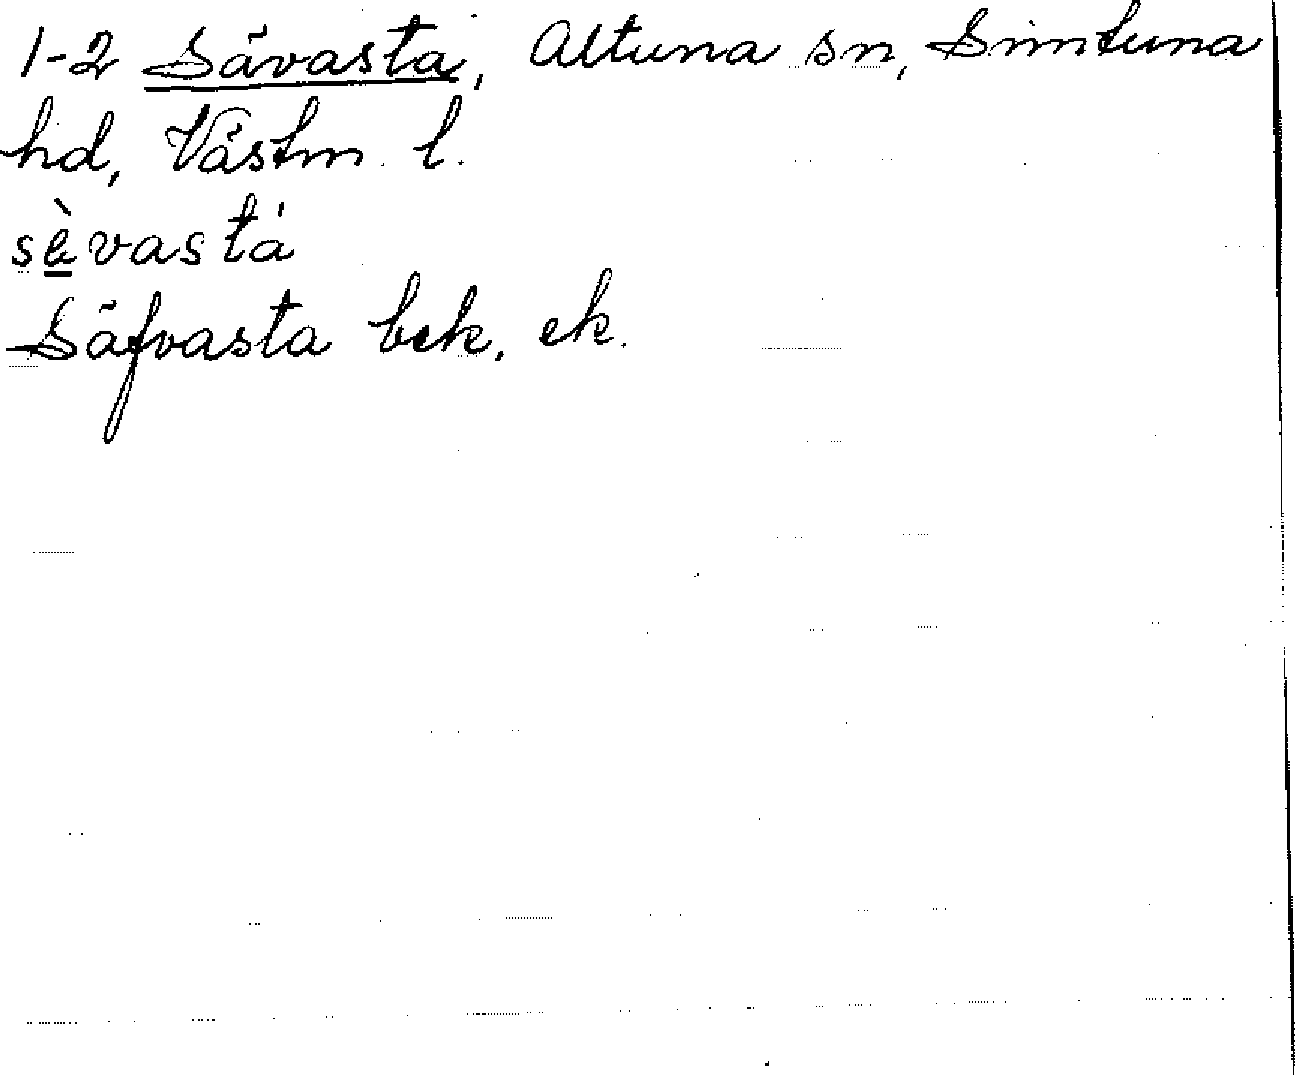 1-2 Sävasta, Altuna sn, Simtuna
hd, Västm. l.
sè̲vastá
Säfvasta bek, ek.